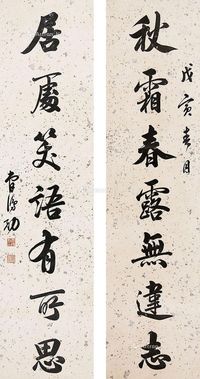 秋霜春露無違志
戊寅春月
居處笑語有所思
曹鴻勛